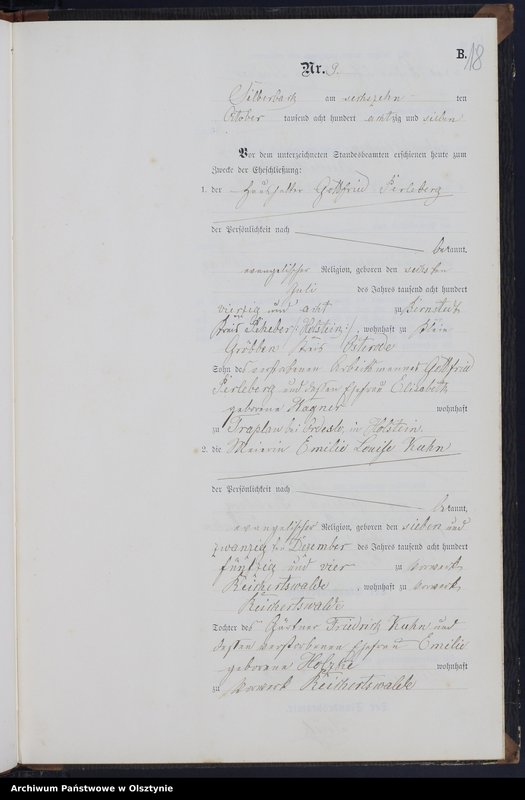 B.
18
Nr. 9.
Silberbach am sechszehn ten
October tausend acht hundert achtzig und sieben
Vor dem unterzeichneten Standesbeamten erschienen heute zum
Zwecke der Eheschließung:
1. der Gottfried Perleberg
der Persönlichkeit nach
bekannt,
evangelischer Religion, geboren den sechsten
Juli des Jahres tausend acht hundert
vierzig und acht zu
Kreis Holstein, wohnhaft zu Klein
Gröbben Kreis Osterode
Sohn des verstorbenen Arbeitsmannes Gottfried
Perleberg und dessen Ehefrau Elisabeth
geborene Wagner wohnhaft
zu bei in Holstein
2. die Meierin Emilie Louise Kuhn
der Persönlichkeit nach
bekannt,
evangelischer Religion, geboren den sieben und
zwanzigsten Dezember des Jahres tausend acht hundert
fünfzig und vier zu Vorwerk
Reichertswalde, wohnhaft zu Vorwerk
Reichertswalde
Tochter des Gärtner Friedrich Kuhn und
dessen verstorbenen Ehefrau Emilie
geborene wohnhaft
zu Vorwerk Reichertswalde
Archiwum Państwowe w Olsztynie